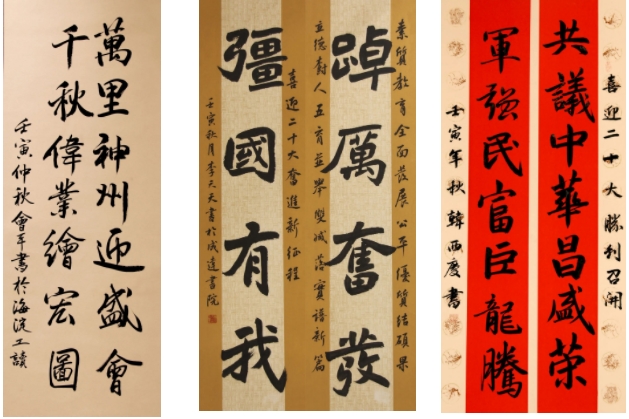 萬里神州迎盛會
千秋偉業繪宏圖
壬寅仲秋會平書於海淀工讀
素質教育全面發展公平優質結碩果
踔厲奮發
立德樹人五育並舉雙減落實譜新篇
喜迎二十大奮進新征程
彊國有我
壬寅秋月李天天書於成達書院
喜迎二十大勝利召開
共議中華昌盛荣
軍强民富巨龍騰
壬寅年秋韓西慶書